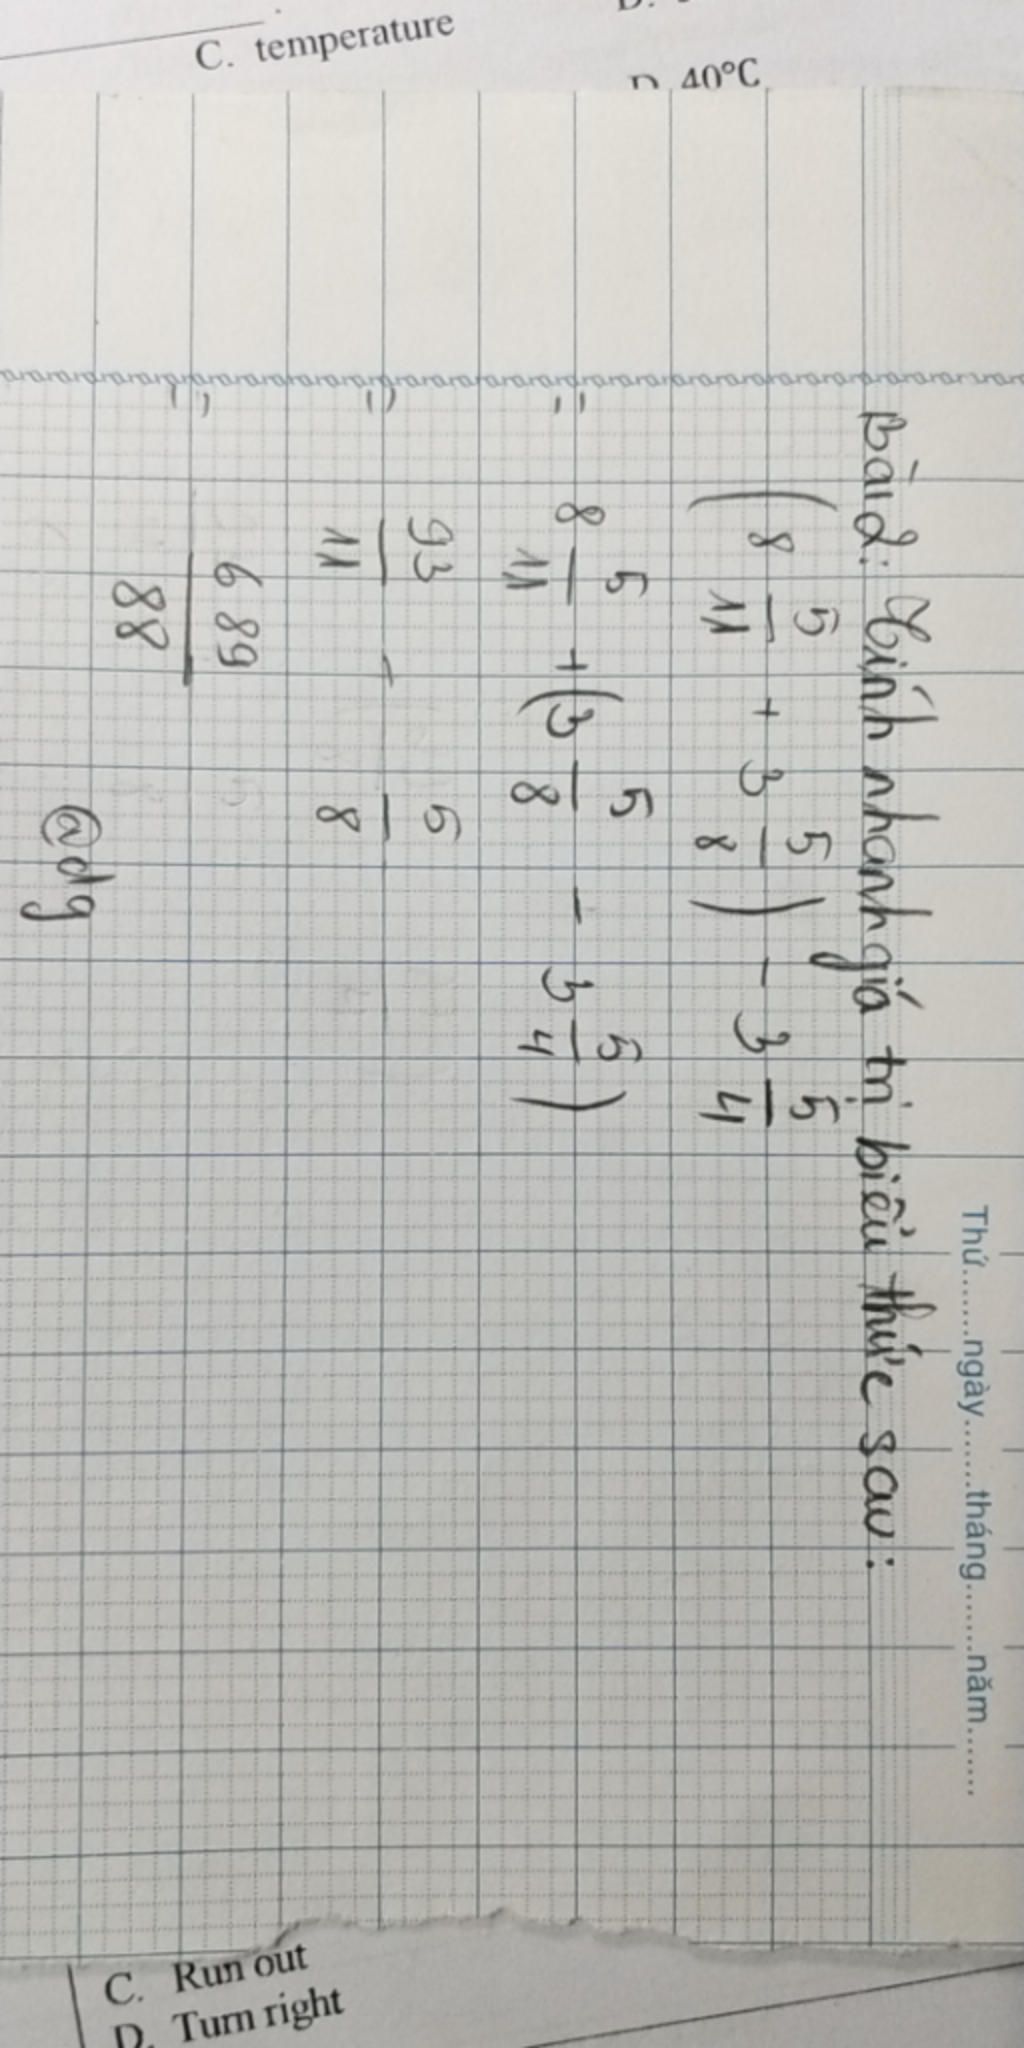 C. temperature
D. 40°C
Thứ.......ngày.......tháng.......năm.......
Bài 2: Tính nhanh giá trị biểu thức sau:
(8 5/11 + 3 5/8) - 3 5/4
= 8 5/11 + (3 5/8 - 3 5/4)
= 93/11 - 5/8
= 689/88
@dg
C. Run out
D. Turn right